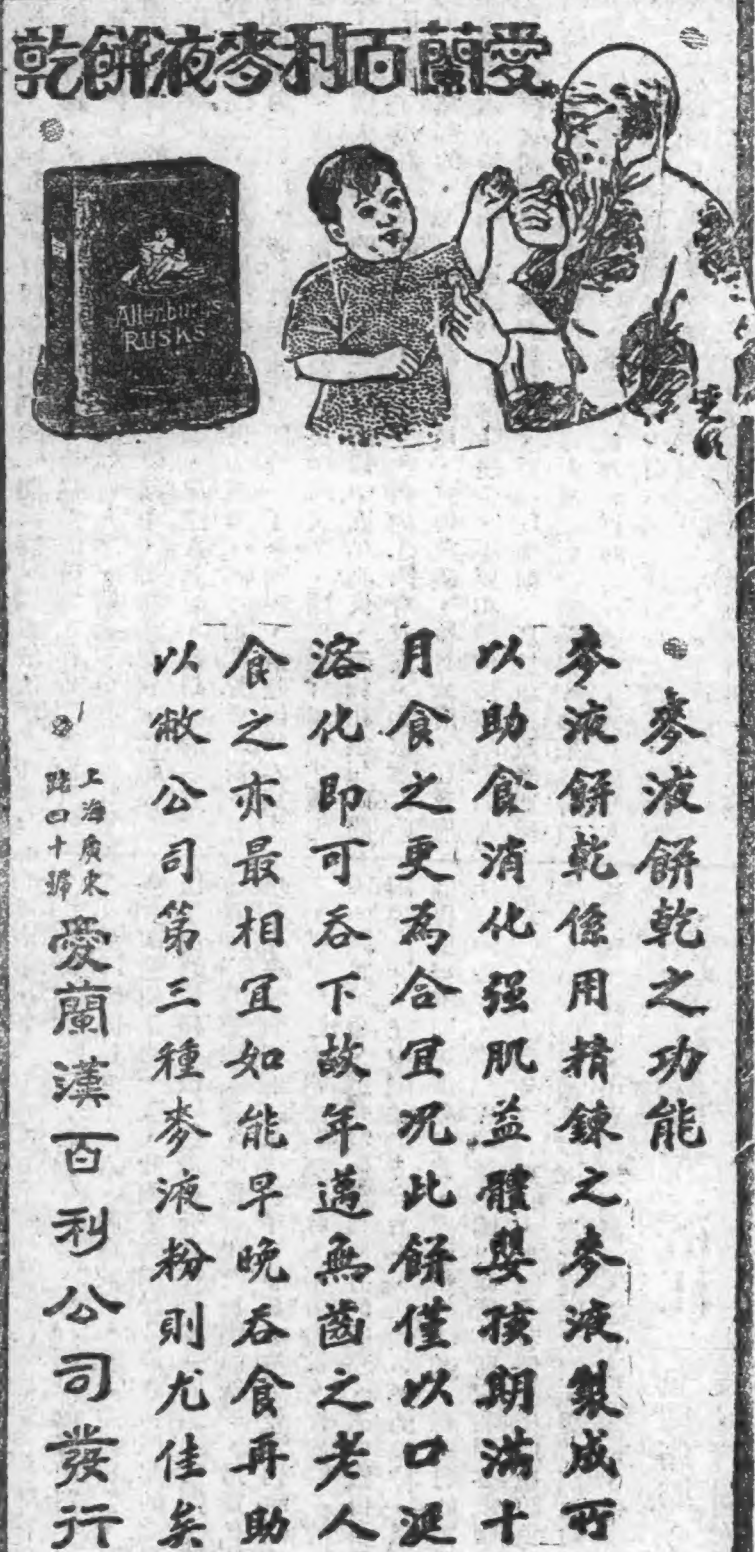 愛蘭百利麥液餅乾
Allenburys
RUSKS
麥液餅乾之功能
麥液餅乾係用精鍊之麥液製成所
以助食消化强肌益體嬰孩期滿十
月食之更為合宜况此餅僅以口涎
溶化即可吞下故年邁無齒之老人
食之亦最相宜如能早晚吞食再助
以敝公司第三種麥液粉則尤佳矣
上海廣東
路四十號
愛蘭漢百利公司發行